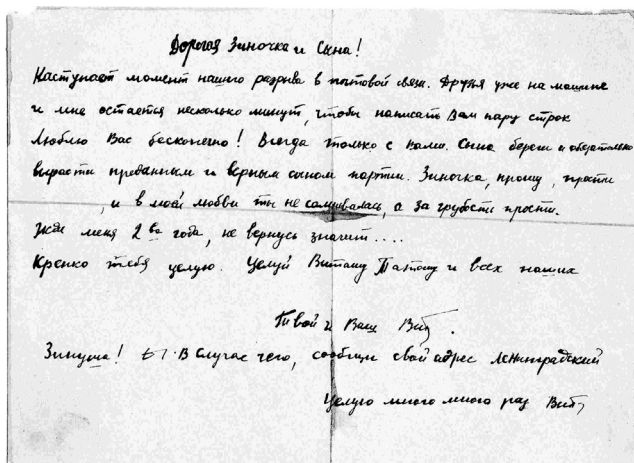 Дорогая Зиночка и Сына!
Наступает момент нашего разрыва в почтовой связи. Друзья уже на машине
и мне остается несколько минут, чтобы написать Вам пару строк
Люблю Вас бесконечно! Всегда только с вами. Сына береги и обязательно
вырасти преданным и верным сыном партии. Зиночка, прошу, прости
, и в моей любви ты не сомневалась, а за грубости прости.
Жди меня 2 ва года, не вернусь значит....
Крепко тебя целую. Целуй Витошу Татошу и всех наших
Твой и Ваш Вит.
Зинуша! В случае чего, сообщи свой адрес Ленинградский
Целую много много раз Вит